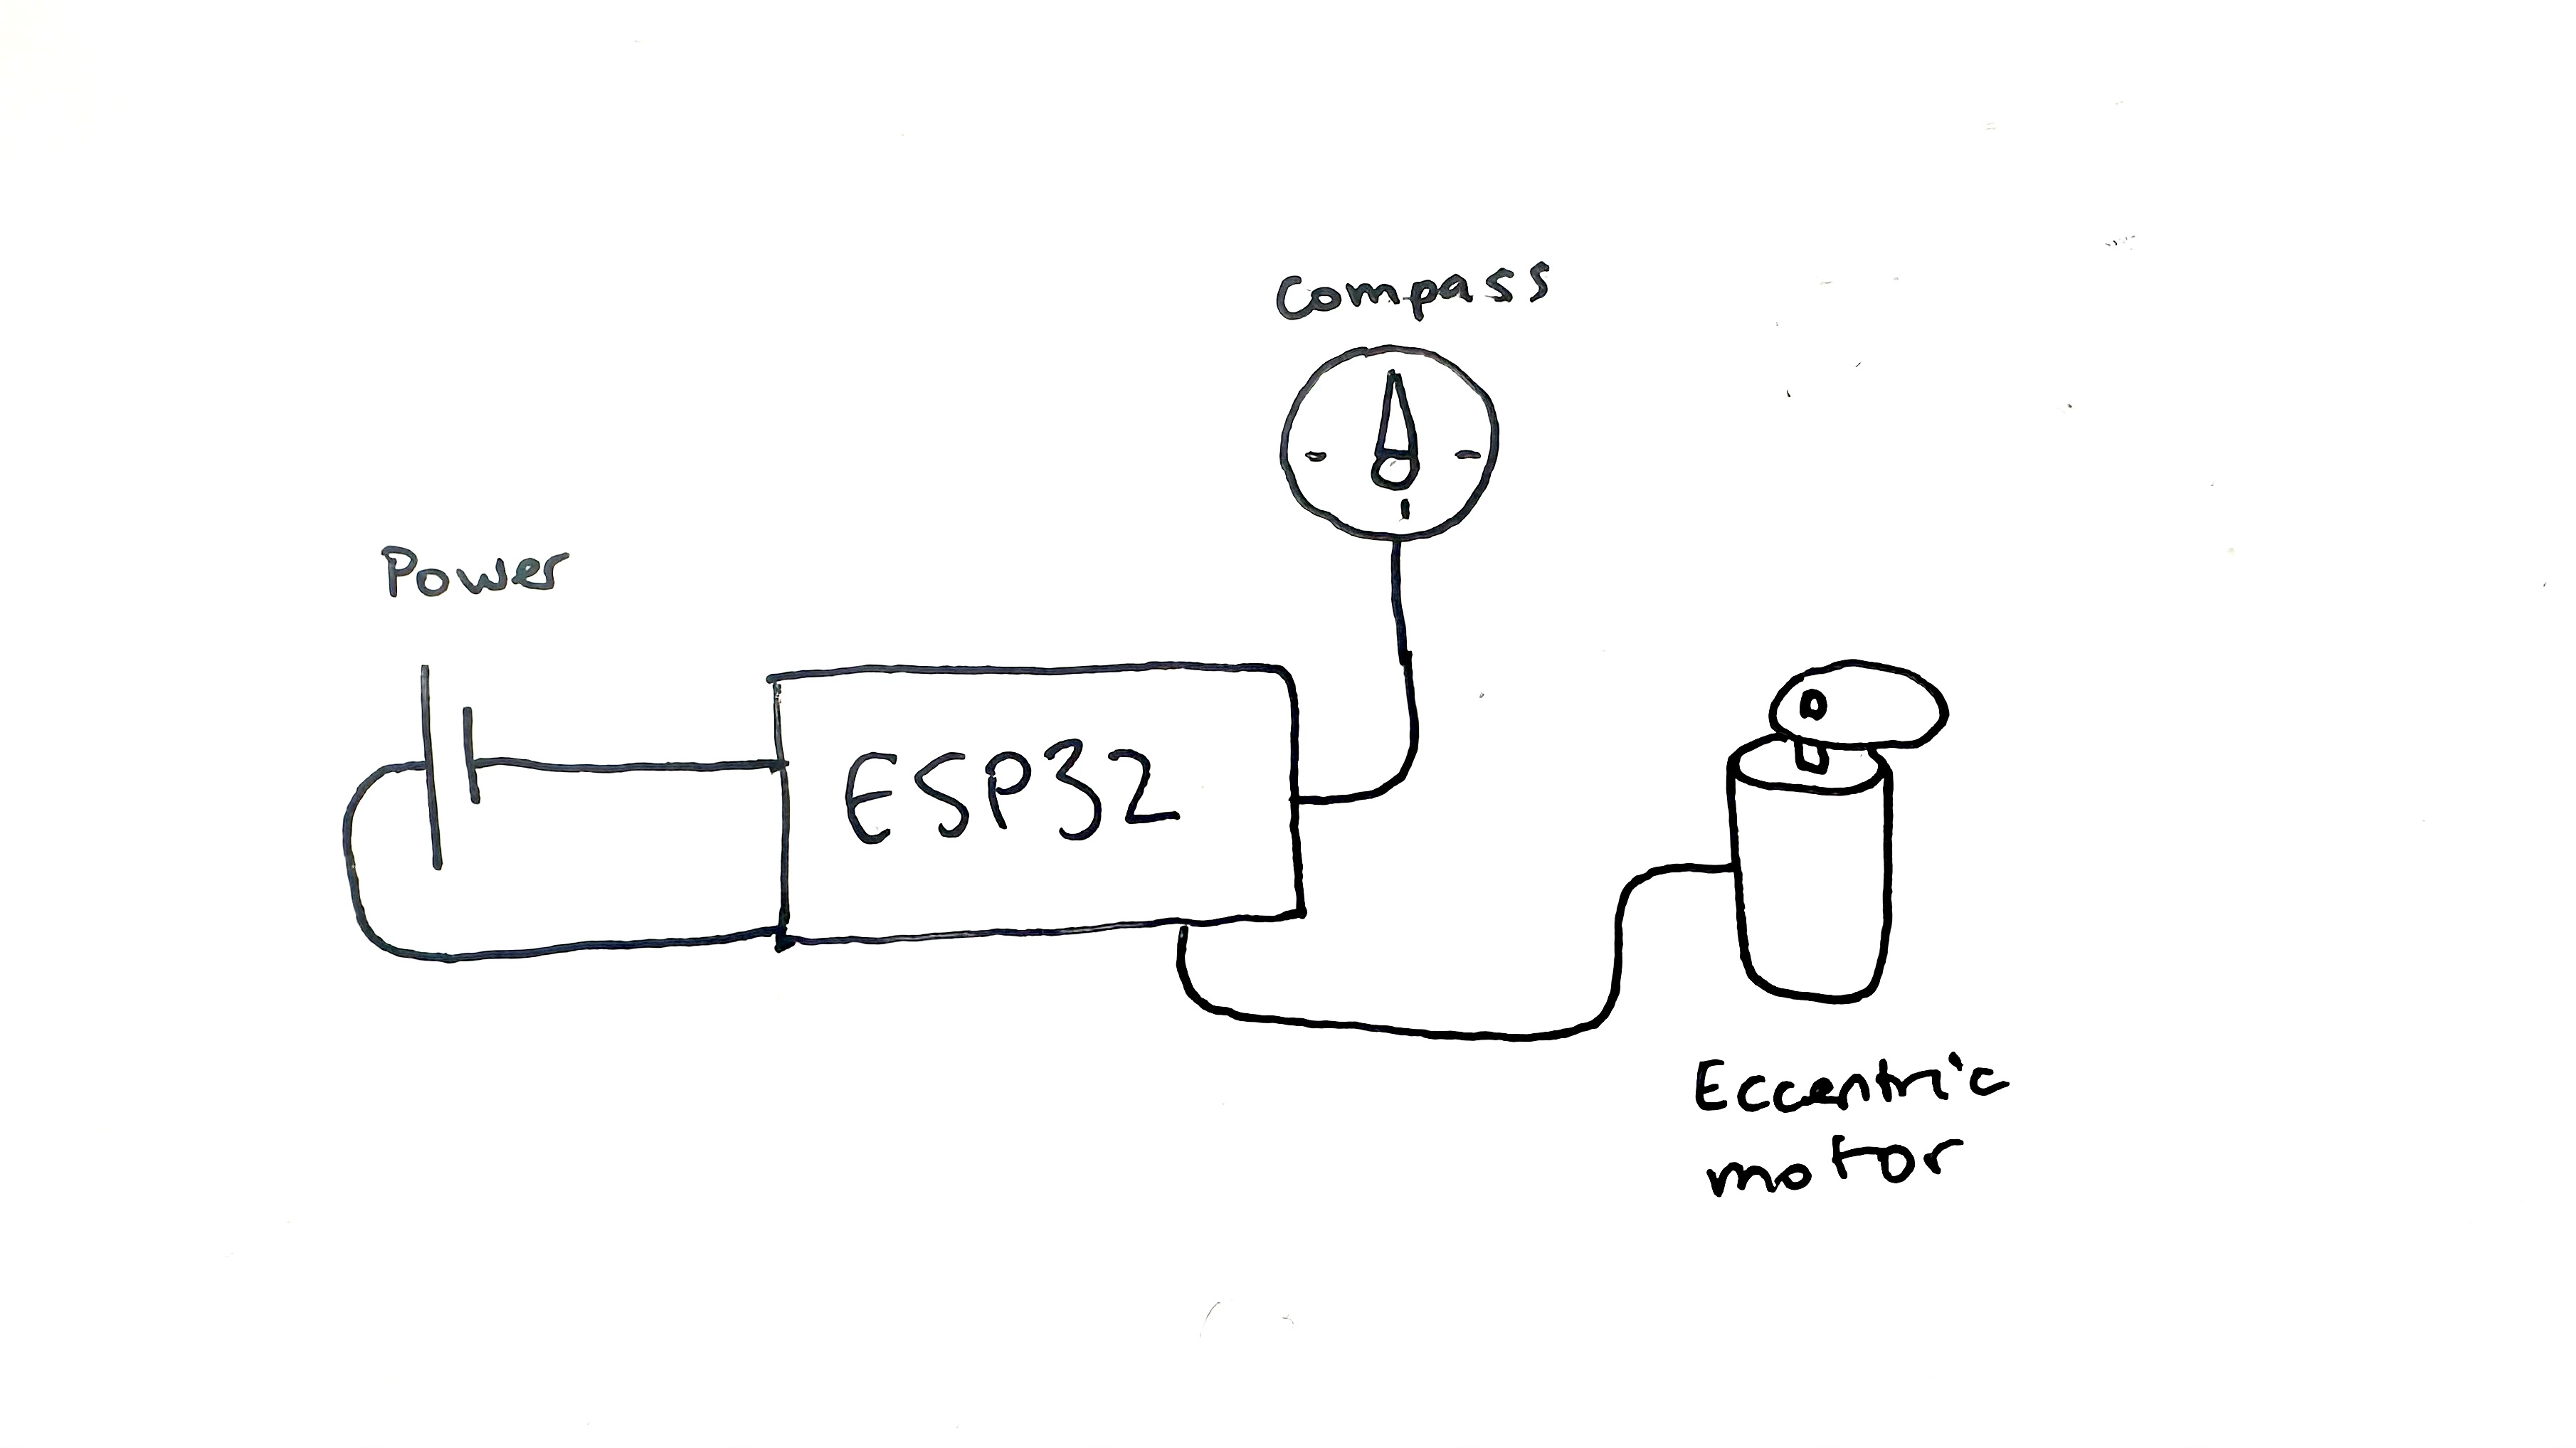 Compass
Power
ESP32
Eccentric
motor